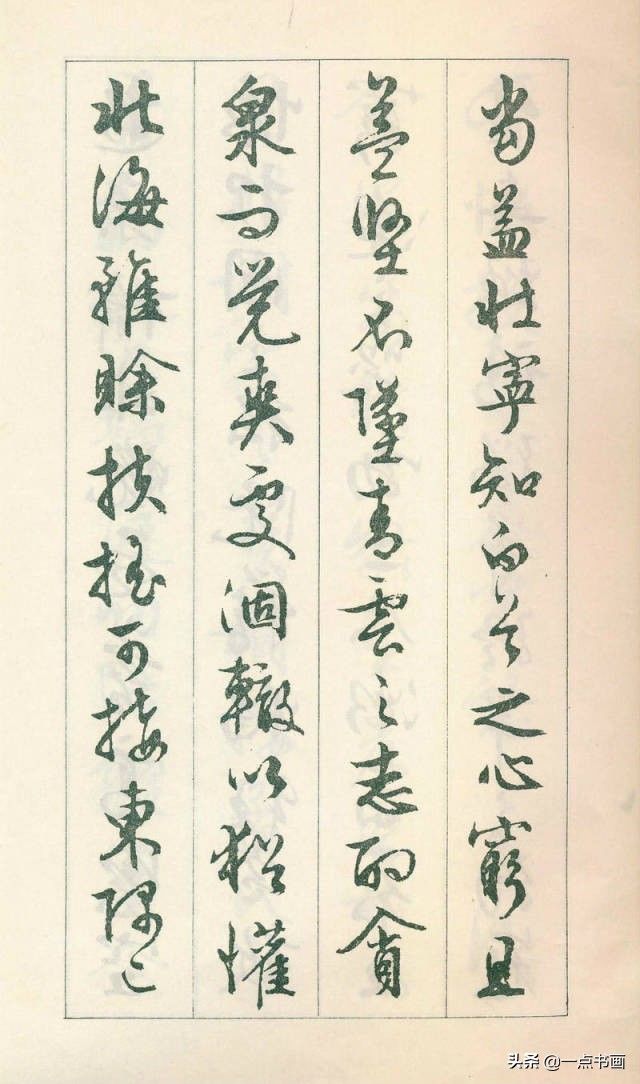 當益壯寧知白首之心窮且
益堅不墜青雲之志酌貪
泉而覺爽處涸轍以猶懽
北海雖賒扶搖可接東隅已
头条 @一点书画